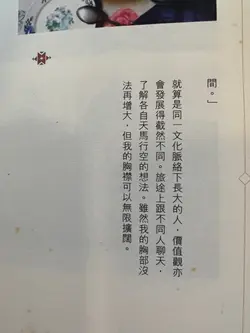 間。」
就算是同一文化脈絡下長大的人，價值觀亦
會發展得截然不同。旅途上跟不同人聊天，
了解各自天馬行空的想法。雖然我的胸部沒
法再增大，但我的胸襟可以無限擴闊。